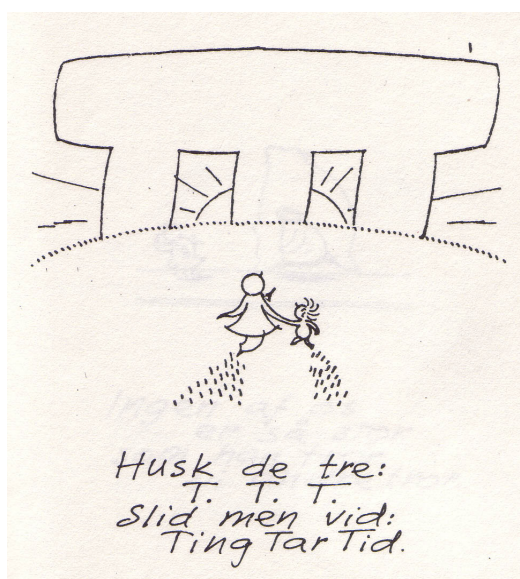 Husk de tre:
T. T. T.
Slid men vid:
Ting Tar Tid.